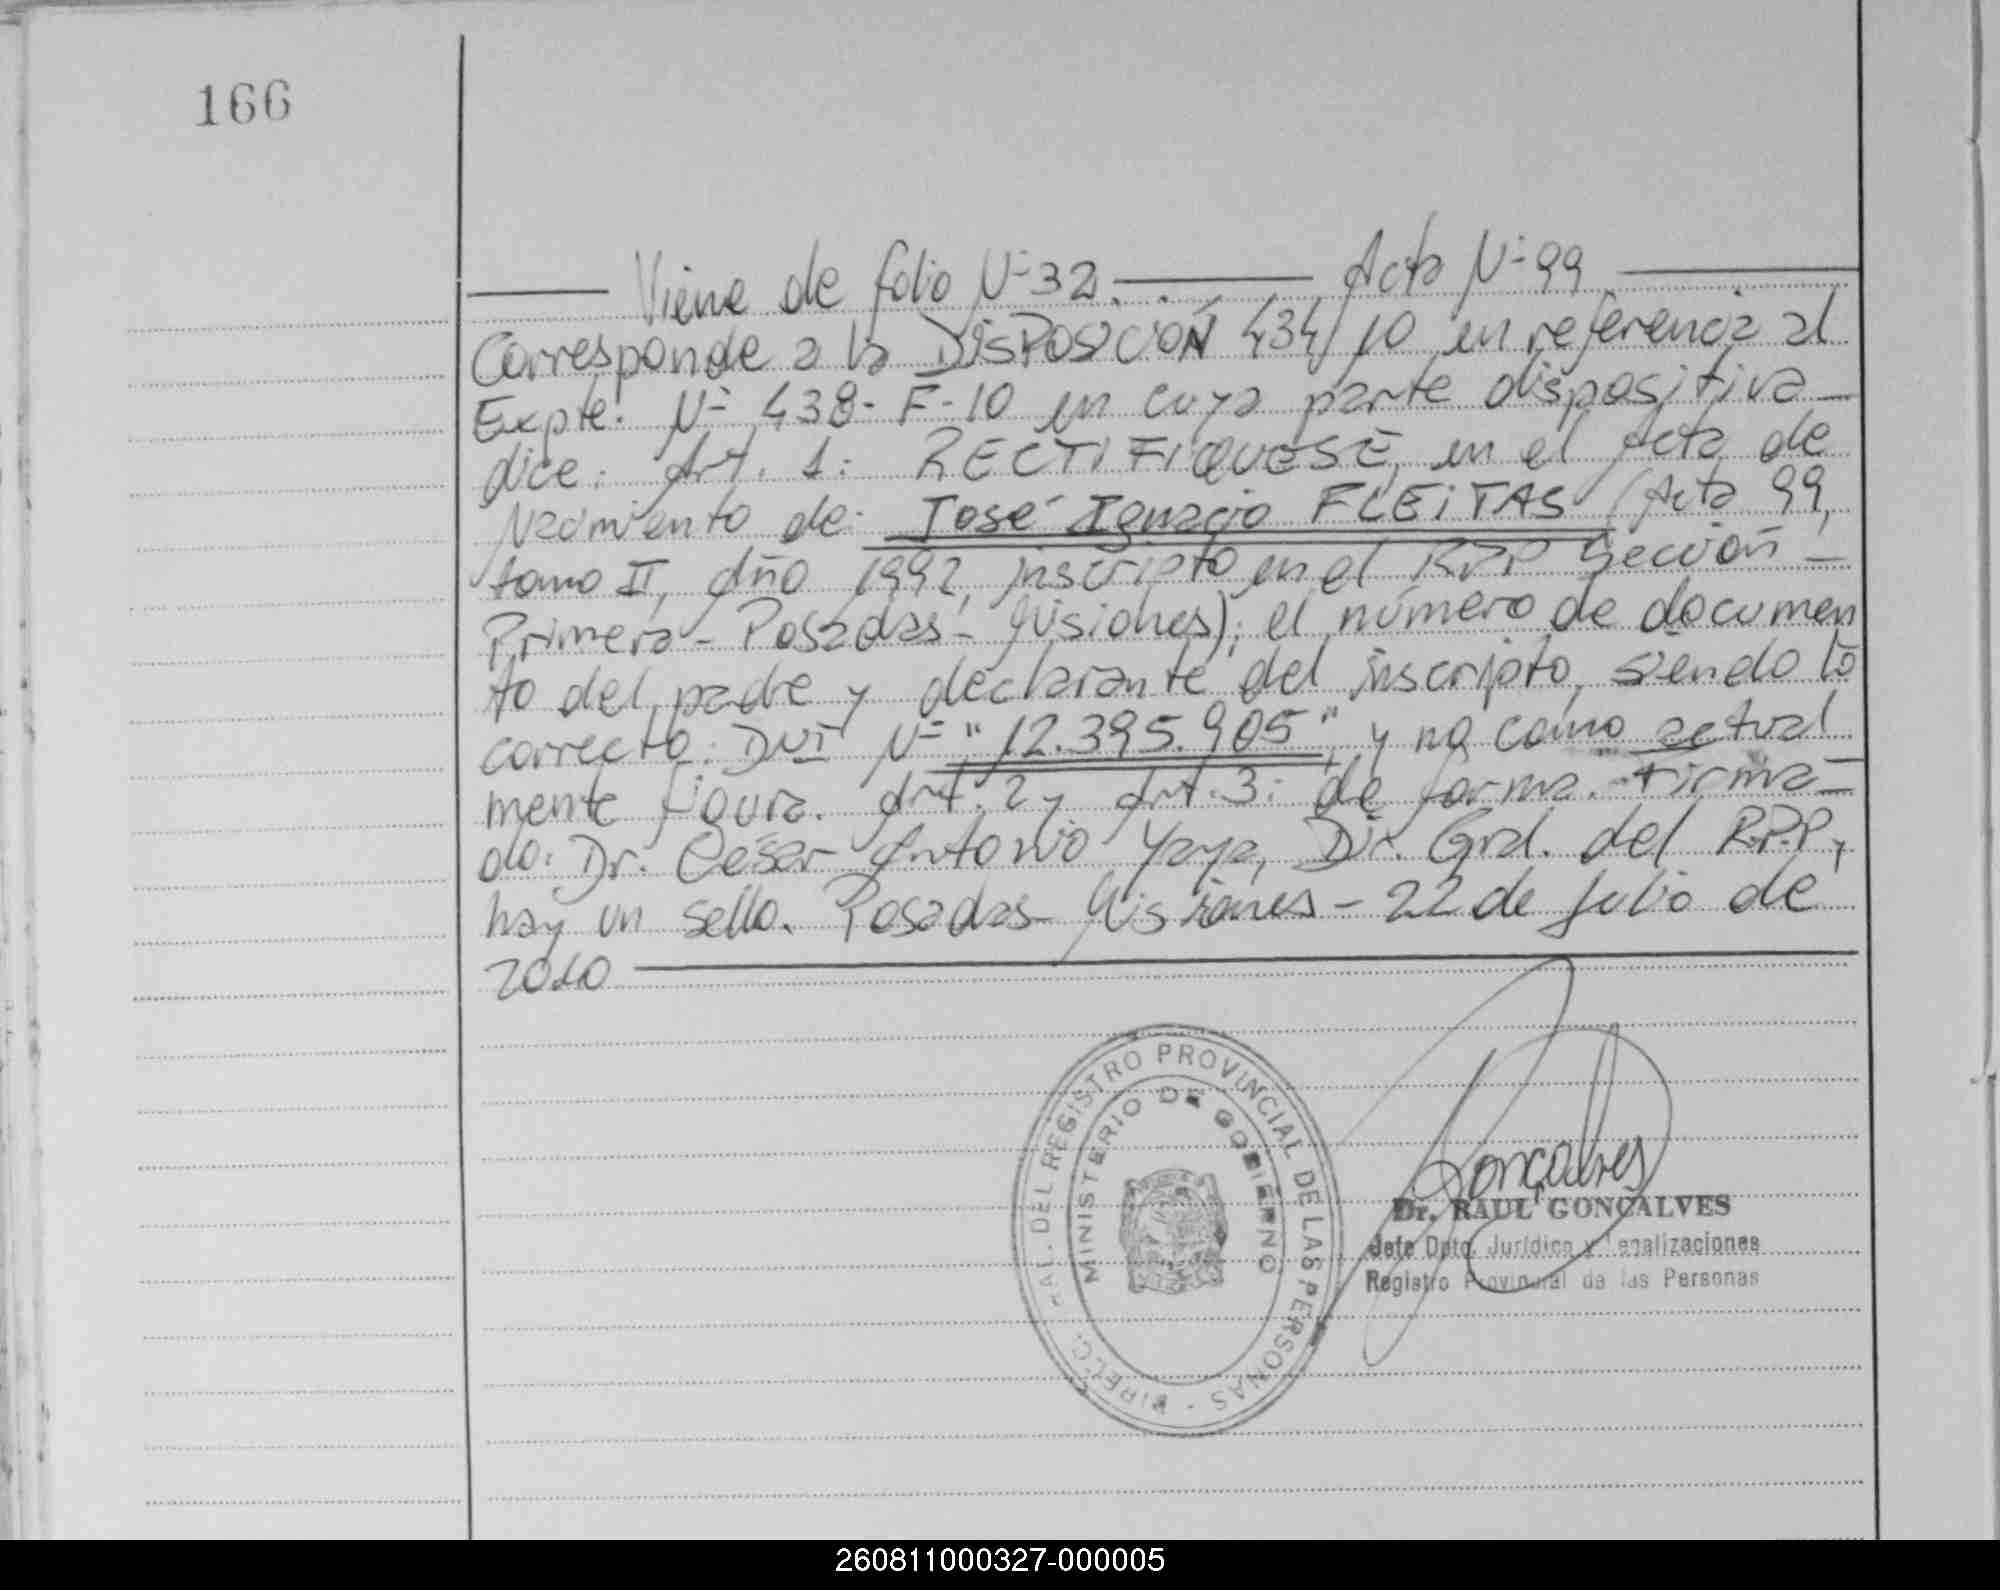 166
Viene de folio Nº 32. Acta Nº 99
Corresponde a la DISPOSICIÓN 434/10 en referencia al
Expte. Nº 438-F-10 en cuya parte dispositiva
dice: Art. 1: RECTIFIQUESE, en el Acta de
Nacimiento de: José Ignacio FLEITAS (Acta 99,
tomo II, Año 1992, inscripto en el RPP Sección
Primera - Posadas - Misiones); el número de documen
to del padre y declarante del inscripto, siendo lo
correcto: DNI Nº "12.395.905", y no como actual
mente figura. Art. 2 y Art. 3: de forma. Firma
do: Dr. César Antonio Yaya, Dir. Gral. del R.P.P,
hay un sello. Posadas Misiones - 22 de Julio de
2010
DIRECC. RAL. DEL REGISTRO PROVINCIAL DE LAS PERSONAS -
MINISTERIO DE GOBIERNO
Gonçalves
Dr. RAUL GONÇALVES
Jefe Dpto. Jurídico y Legalizaciones
Registro Provincial de las Personas
260811000327-000005